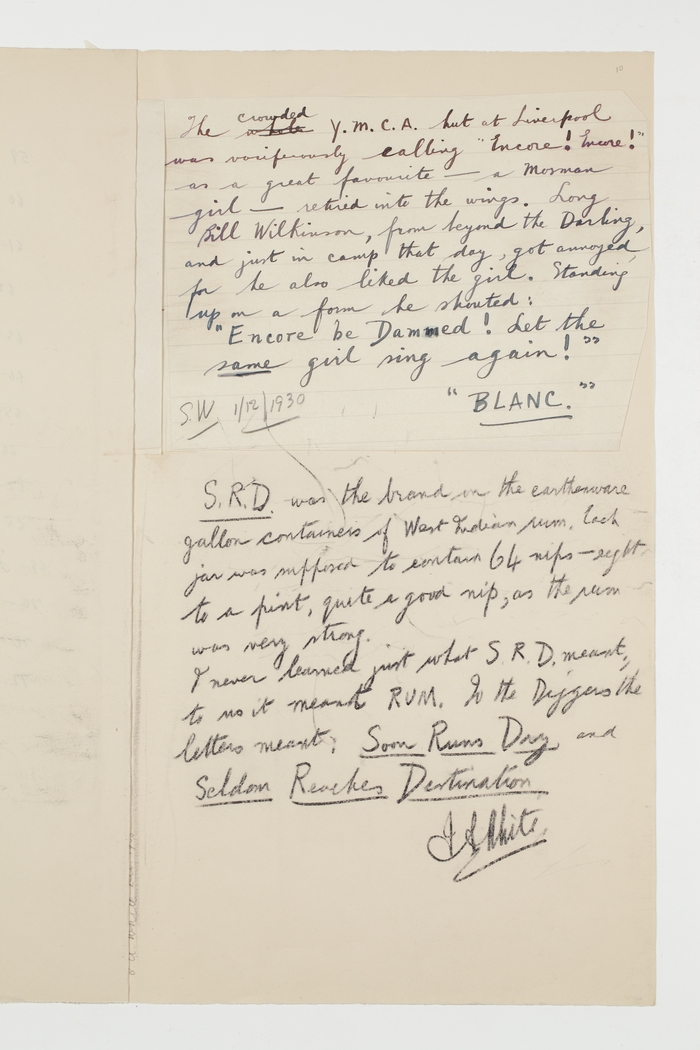 The crowded Y.M.C.A. hut at Liverpool
was vociferously calling "Encore! Encore!"
as a great favourite — a Mosman
girl — retired into the wings. Long
Bill Wilkinson, from beyond the Darling,
and just in camp that day, got annoyed,
for he also liked the girl. Standing
up on a form he shouted:
"Encore be Dammed! Let the
same girl sing again!"
"BLANC."
S.W 1/12/1930
S.R.D. was the brand on the earthenware
gallon containers of West Indian rum. Each
jar was supposed to contain 64 nips – eight
to a pint, quite a good nip, as the rum
was very strong.
I never learned just what S.R.D. meant,
to us it meant RUM. To the Diggers the
letters meant; Soon Runs Dry, and
Seldom Reaches Destination
J A White.